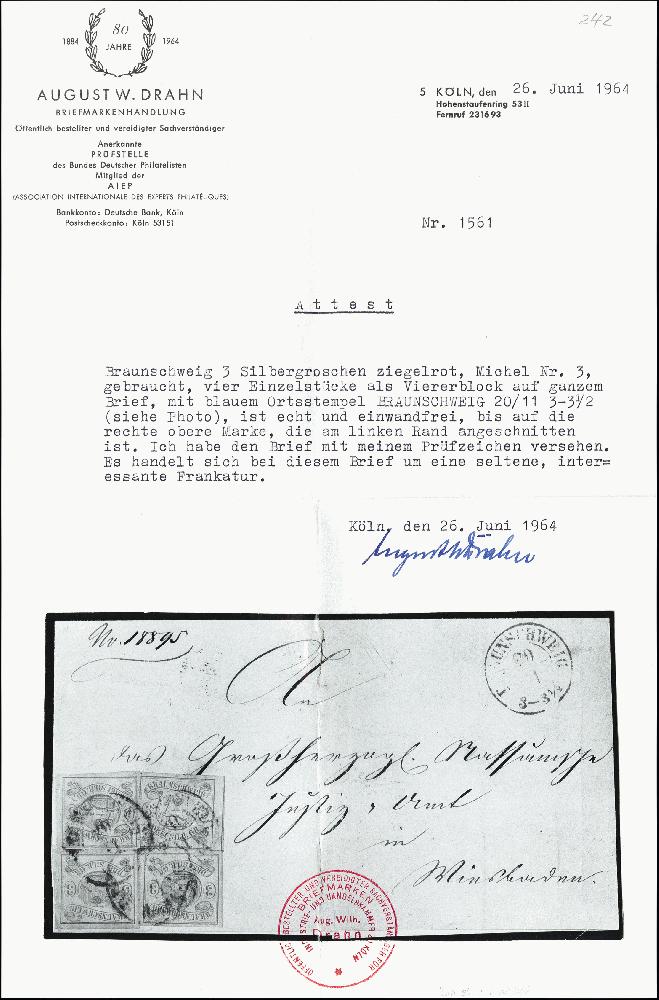 242
80
1884 JAHRE 1964
AUGUST W. DRAHN
BRIEFMARKENHANDLUNG
Öffentlich bestellter und vereidigter Sachverständiger
Anerkannte
PRÜFSTELLE
des Bundes Deutscher Philatelisten
Mitglied der
AIEP
(ASSOCIATION INTERNATIONALE DES EXPERTS PHILATÉLIQUES)
Bankkonto: Deutsche Bank, Köln
Postscheckkonto: Köln 53151
5 KÖLN, den 26. Juni 1964
Hohenstaufenring 53II
Fernruf 231693
Nr. 1561
Attest
Braunschweig 3 Silbergroschen ziegelrot, Michel Nr. 3,
gebraucht, vier Einzelstücke als Viererblock auf ganzem
Brief, mit blauem Ortsstempel BRAUNSCHWEIG 20/11 3-3½
(siehe Photo), ist echt und einwandfrei, bis auf die
rechte obere Marke, die am linken Rand angeschnitten
ist. Ich habe den Brief mit meinem Prüfzeichen versehen.
Es handelt sich bei diesem Brief um eine seltene, inter=
essante Frankatur.
Köln, den 26. Juni 1964
August W Drahn
No. 18895
An
das Großherzogl. Nassauische
Justiz-Amt
in
Wiesbaden.
BRAUNSCHWEIG
20
3-3½
ÖFFENTLICH BESTELLTER UND VEREIDIGTER SACHVERSTÄNDIGER FÜR
BRIEFMARKEN
INDUSTRIE- UND HANDELSKAMMER KÖLN
Aug. Wilh.
Drahn